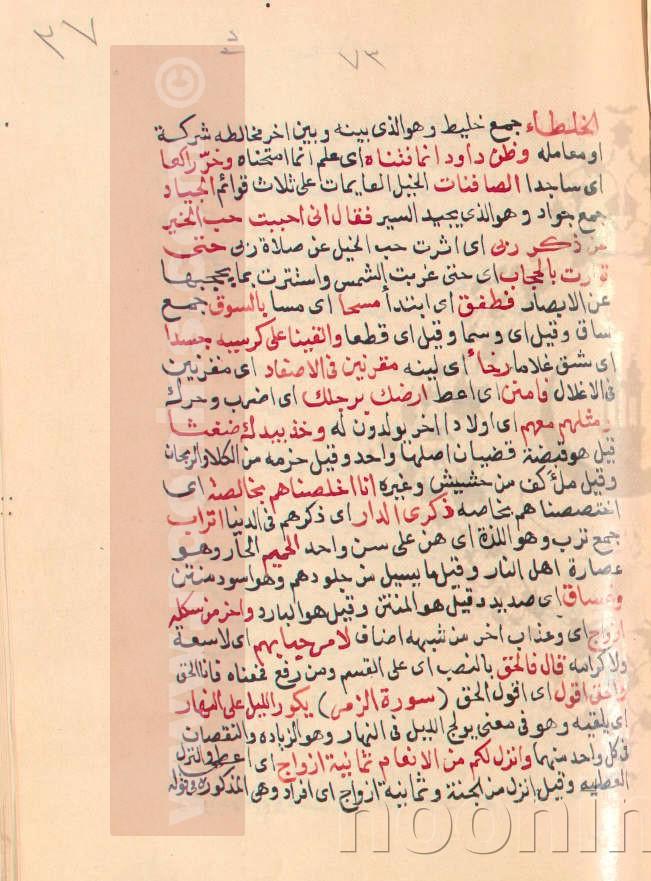 ٢٧
٧٣
الخلطاء جمع خليط وهو الذى بينه وبين اخر مخالطه شركة
او معامله وظن داود انما فتناه اى علم انما امتحناه وخر راكعا
اى ساجدا الصافنات الخيل القايمات على ثلاث قوائم الجياد
جمع جواد وهو الذى يجيد السير فقال انى احببت حب الخير
عن ذكر ربى اى اثرت حب الخيل عن صلاة ربى حتى
توارت بالحجاب اى حتى غربت الشمس واستترت بما يحجبها
عن الابصار فطفق اى ابتدأ مسحا اى مسا بالسوق جمع
ساق وقيل اى وسما وقيل اى قطعا والقينا على كرسيه جسدا
اى شق غلاما رخاء اى لينه مقرنين فى الاصفاد اى مقرنين
فى الاغلال فامنن اى اعط اركض برجلك اى اضرب وحرك
ومثلهم معهم اى اولادا اخر يولدون له وخذ بيدك ضغثا
قيل هو قبضة قضبان اصلها واحد وقيل حزمه من الكلا والريحان
وقيل ملأ كف من حشيش وغيره انا اخلصناهم بخالصة اى
اختصصناهم بخاصه ذكرى الدار اى ذكرهم فى الدنيا اتراب
جمع ترب وهو اللدة اى هن على سن واحد الحميم الحار وهو
عصارة اهل النار وقيل ما يسيل من جلودهم وهو اسود منتن
وغساق اى صديد وقيل هو المنتن وقيل هو البارد واخر من شكله
ازواج اى وعذاب اخر من شبهه اصناف لا مرحبا بهم اى لا سعة
ولا كرامه قال فالحق بالنصب اى على القسم ومن رفع فمعناه فانا الحق
والحق اقول اى اقول الحق (سورة الزمر) يكور الليل على النهار
اى يلقيه وهو فى معنى يولج الليل فى النهار وهو الزيادة والنقصان
فى كل واحد منهما وانزل لكم من الانعام ثمانية ازواج اى اعطى والنزل
العطيه وقيل انزل من الجنة وثمانية ازواج اى افراد وهى المذكورة فى قوله
noonin